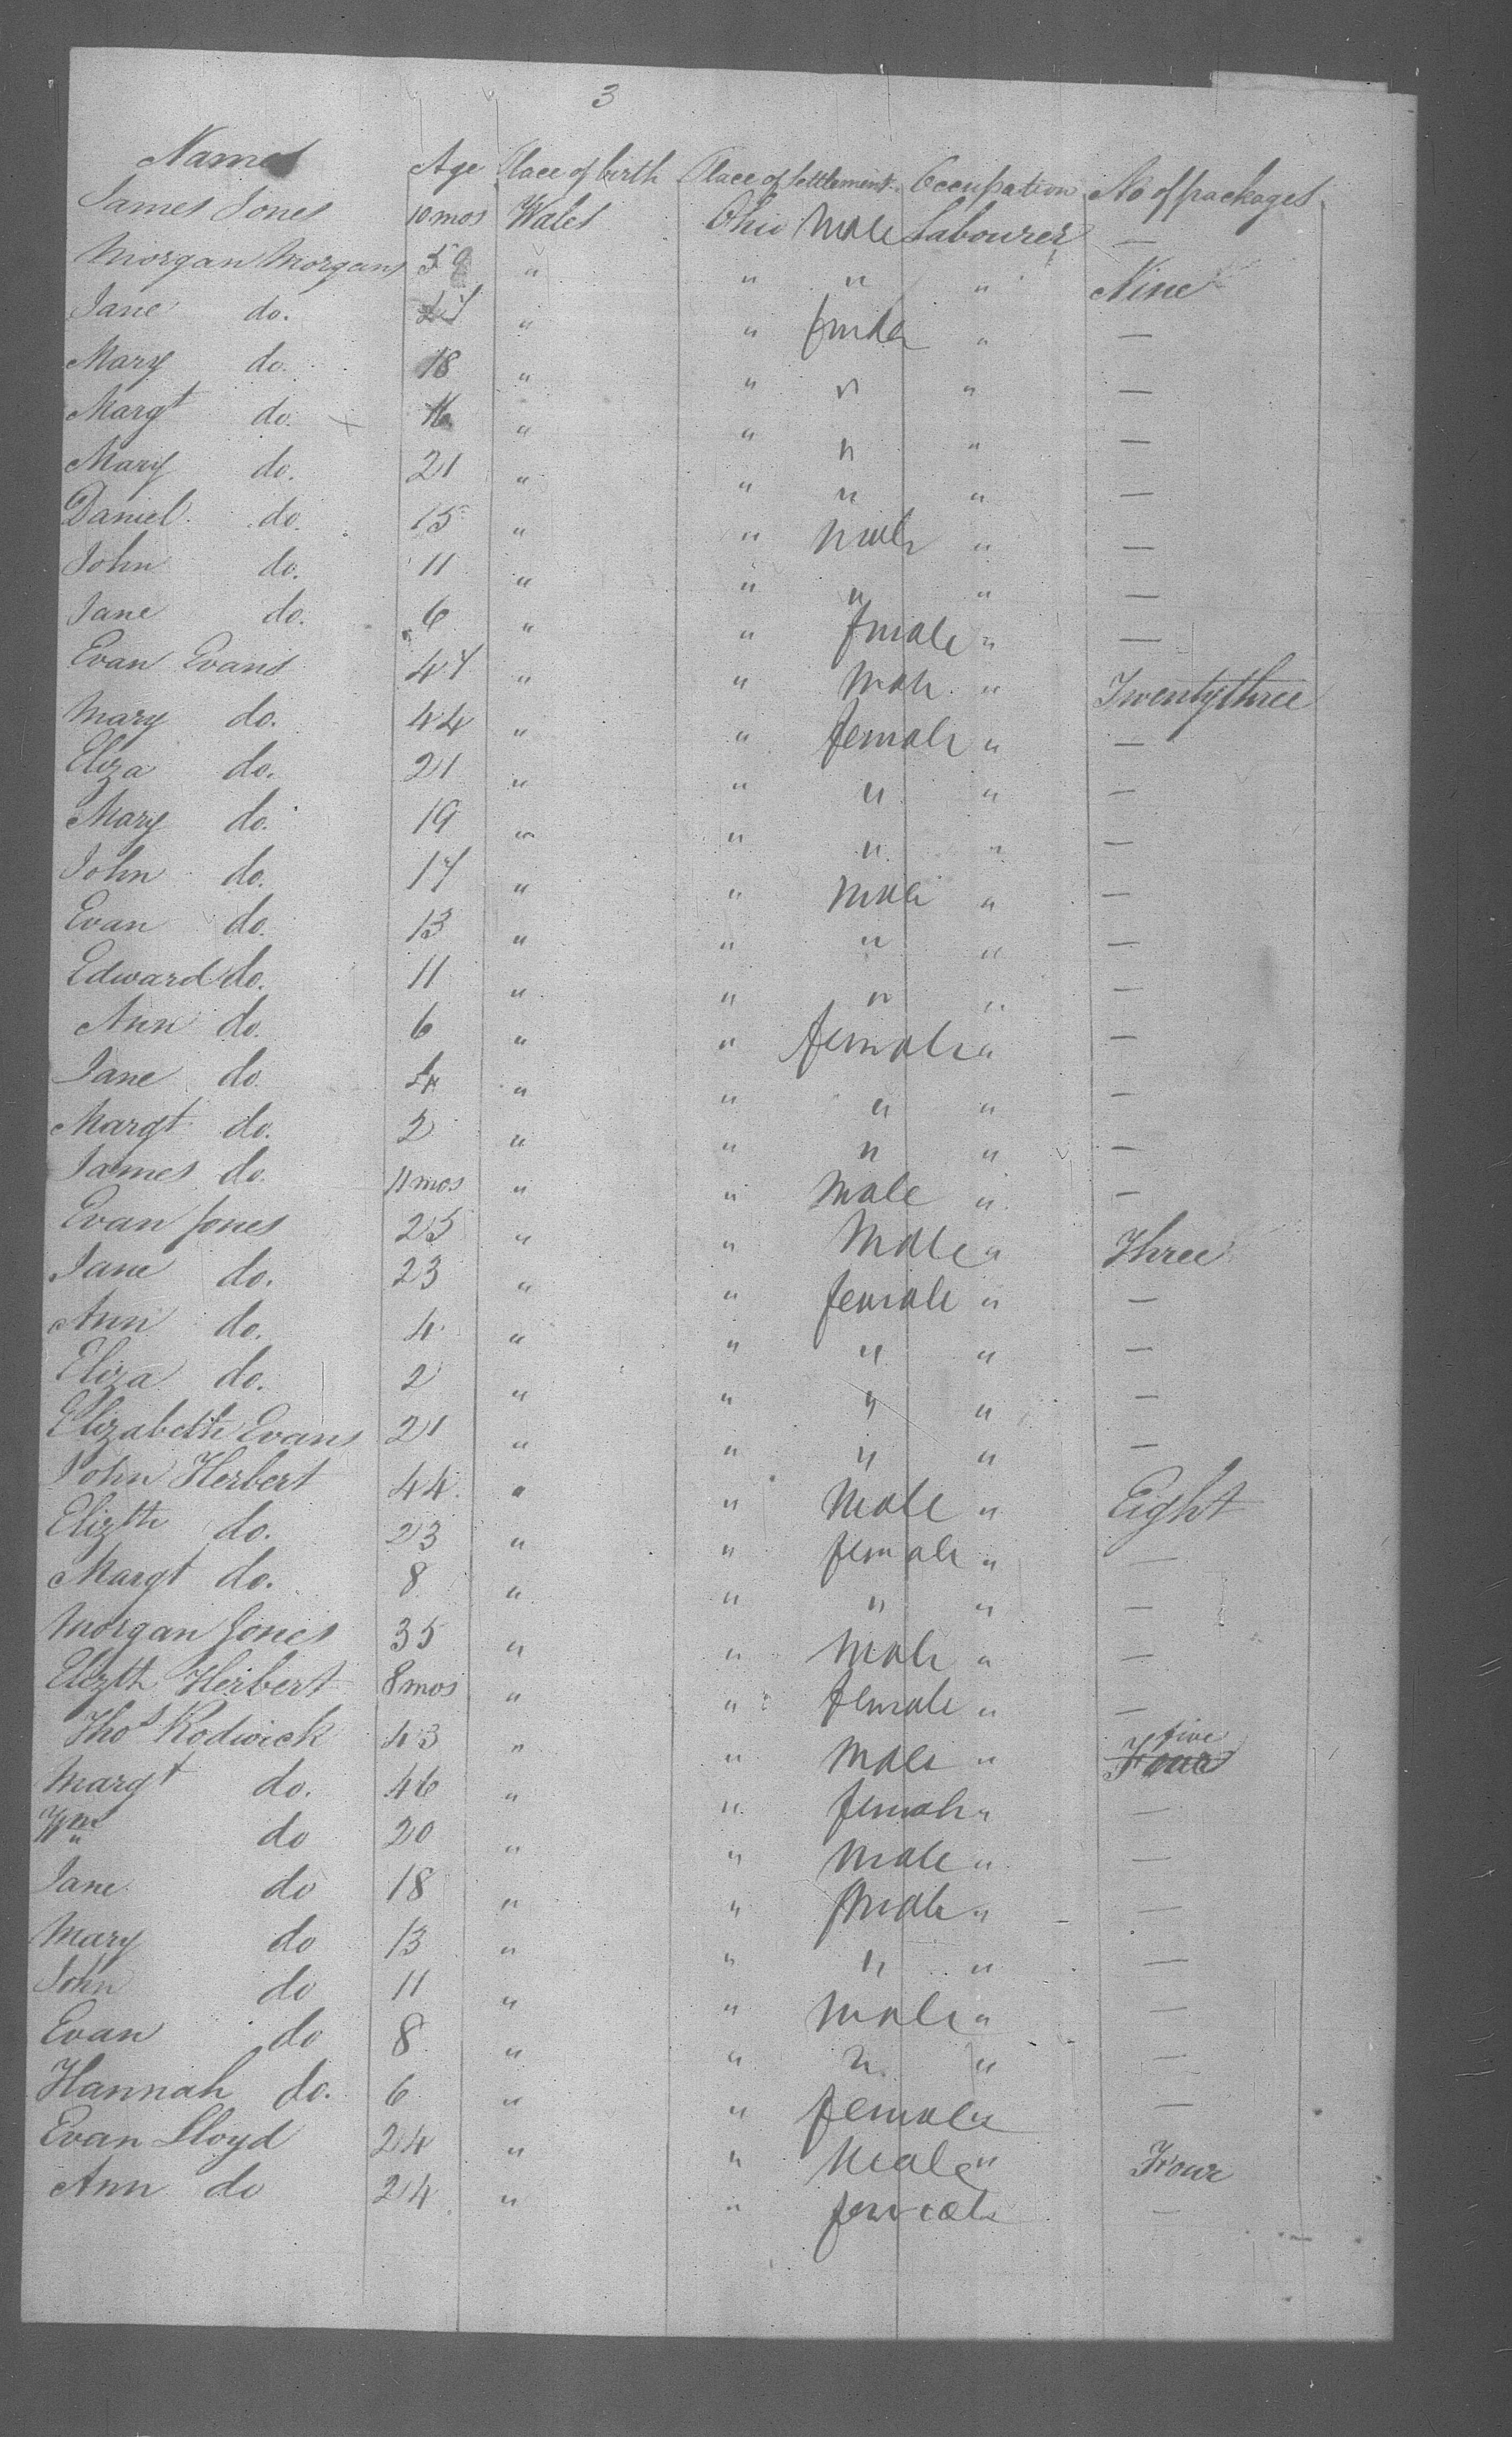 3
Names Age Place of birth Place of Settlement Occupation No of packages
James Jones 10 mos Wales Ohio Male Labourer —
Morgan Morgans 59 " " " " Nine
Jane do. " " female " —
Mary do. 18 " " " " —
Margt do. 16 " " " " —
Mary do. 21 " " " " —
Daniel do. 15 " " male " —
John do. 11 " " " " —
Jane do. 6 " " female " —
Evan Evans 47 " " male " Twentythree
Mary do. 44 " " female " —
Eliza do. 21 " " " " —
Mary do. 19 " " " " —
John do. 17 " " male " —
Evan do. 13 " " " " —
Edward do. 11 " " " " —
Ann do. 6 " " female " —
Jane do 4 " " " " —
Margt do. 2 " " " " —
James do. 11 mos " " male " —
Evan Jones 25 " " Male " Three
Jane do. 23 " " female " —
Ann do. 4 " " " " —
Eliza do. 2 " " " " —
Elizabeth Evans 21 " " " " —
John Herbert 44 " " Male " Eight
Elizth do. 23 " " female " —
Margt do. 8 " " " " —
Morgan Jones 35 " " Male " —
Elizth Herbert 8 mos " " female " —
Thos Rodwick 43 " " Male " Four five
Margt do. 46 " " female " —
Wm do 20 " " Male " —
Jane do 18 " " female " —
Mary do 13 " " " " —
John do 11 " " Male " —
Evan do 8 " " " " —
Hannah do. 6 " " female " —
Evan Lloyd 24 " " Male " Four
Ann do 24 " " female —